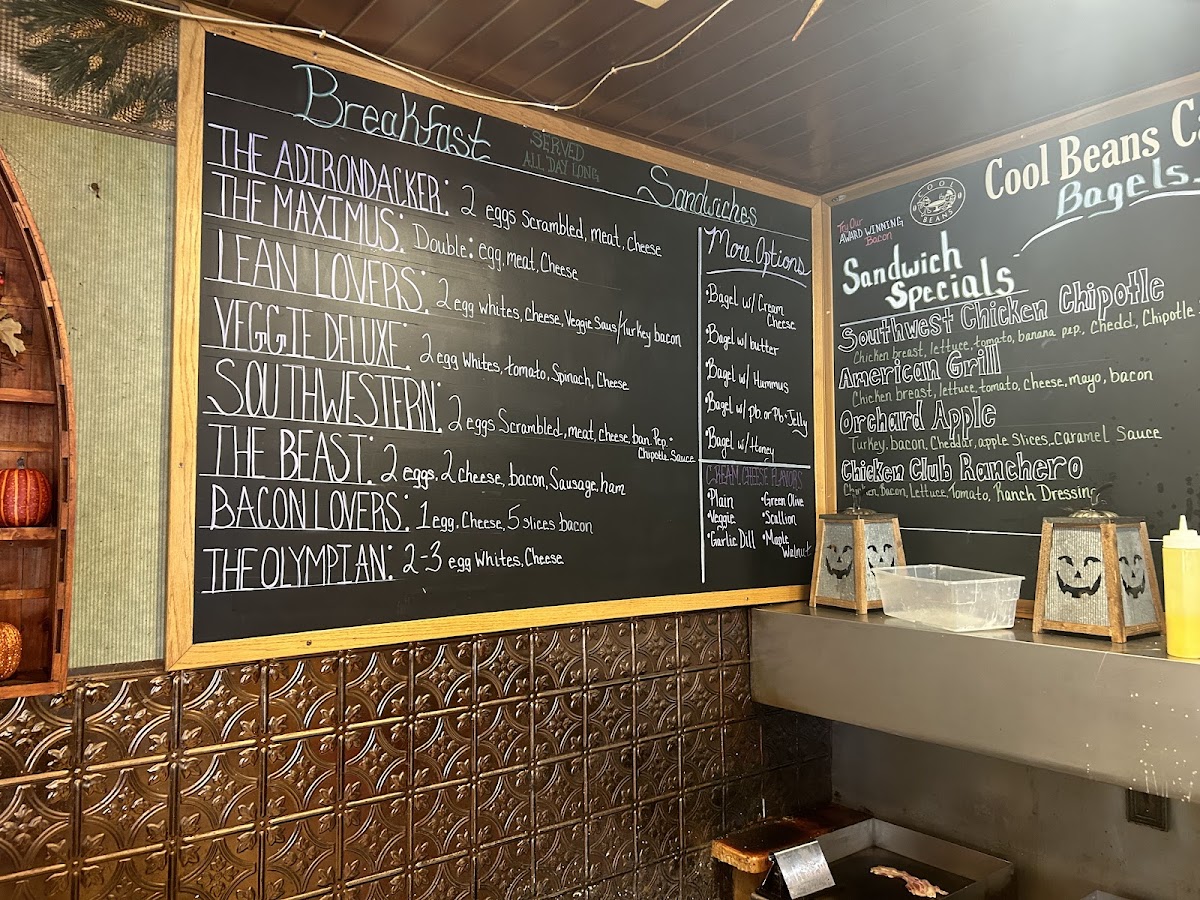 Breakfast
SERVED
ALL DAY LONG
Sandwiches
THE ADIRONDACKER: 2 eggs Scrambled, meat, cheese
THE MAXIMUS: Double: egg, meat, Cheese
LEAN LOVERS: 2 egg whites, cheese, Veggie Saus/Turkey bacon
VEGGIE DELUXE: 2 egg whites, tomato, Spinach, Cheese
SOUTHWESTERN: 2 eggs Scrambled, meat, cheese, ban. Pep.
Chipotle Sauce
THE BEAST: 2 eggs, 2 cheese, bacon, Sausage, ham
BACON LOVERS: 1 egg, Cheese, 5 slices bacon
THE OLYMPIAN: 2-3 egg Whites, Cheese
More Options
•Bagel w/ Cream
Cheese
•Bagel w/ butter
•Bagel w/ Hummus
•Bagel w/ pb. or Pb+Jelly
•Bagel w/ Honey
CREAM CHEESE FLAVORS
•Plain
•Veggie
•Garlic Dill
•Green Olive
•Scallion
•Maple
Walnut
Cool Beans
COOL
BEANS
Bagels
Try Our
AWARD WINNING
Bacon
Sandwich
Specials
Southwest Chicken Chipotle
Chicken breast, lettuce, tomato, banana pep, Chedd, Chipotle
American Grill
Chicken breast, lettuce, tomato, cheese, mayo, bacon
Orchard Apple
Turkey, bacon, Cheddar, apple Slices, Caramel Sauce
Chicken Club Ranchero
Chicken, Bacon, Lettuce, Tomato, Ranch Dressing